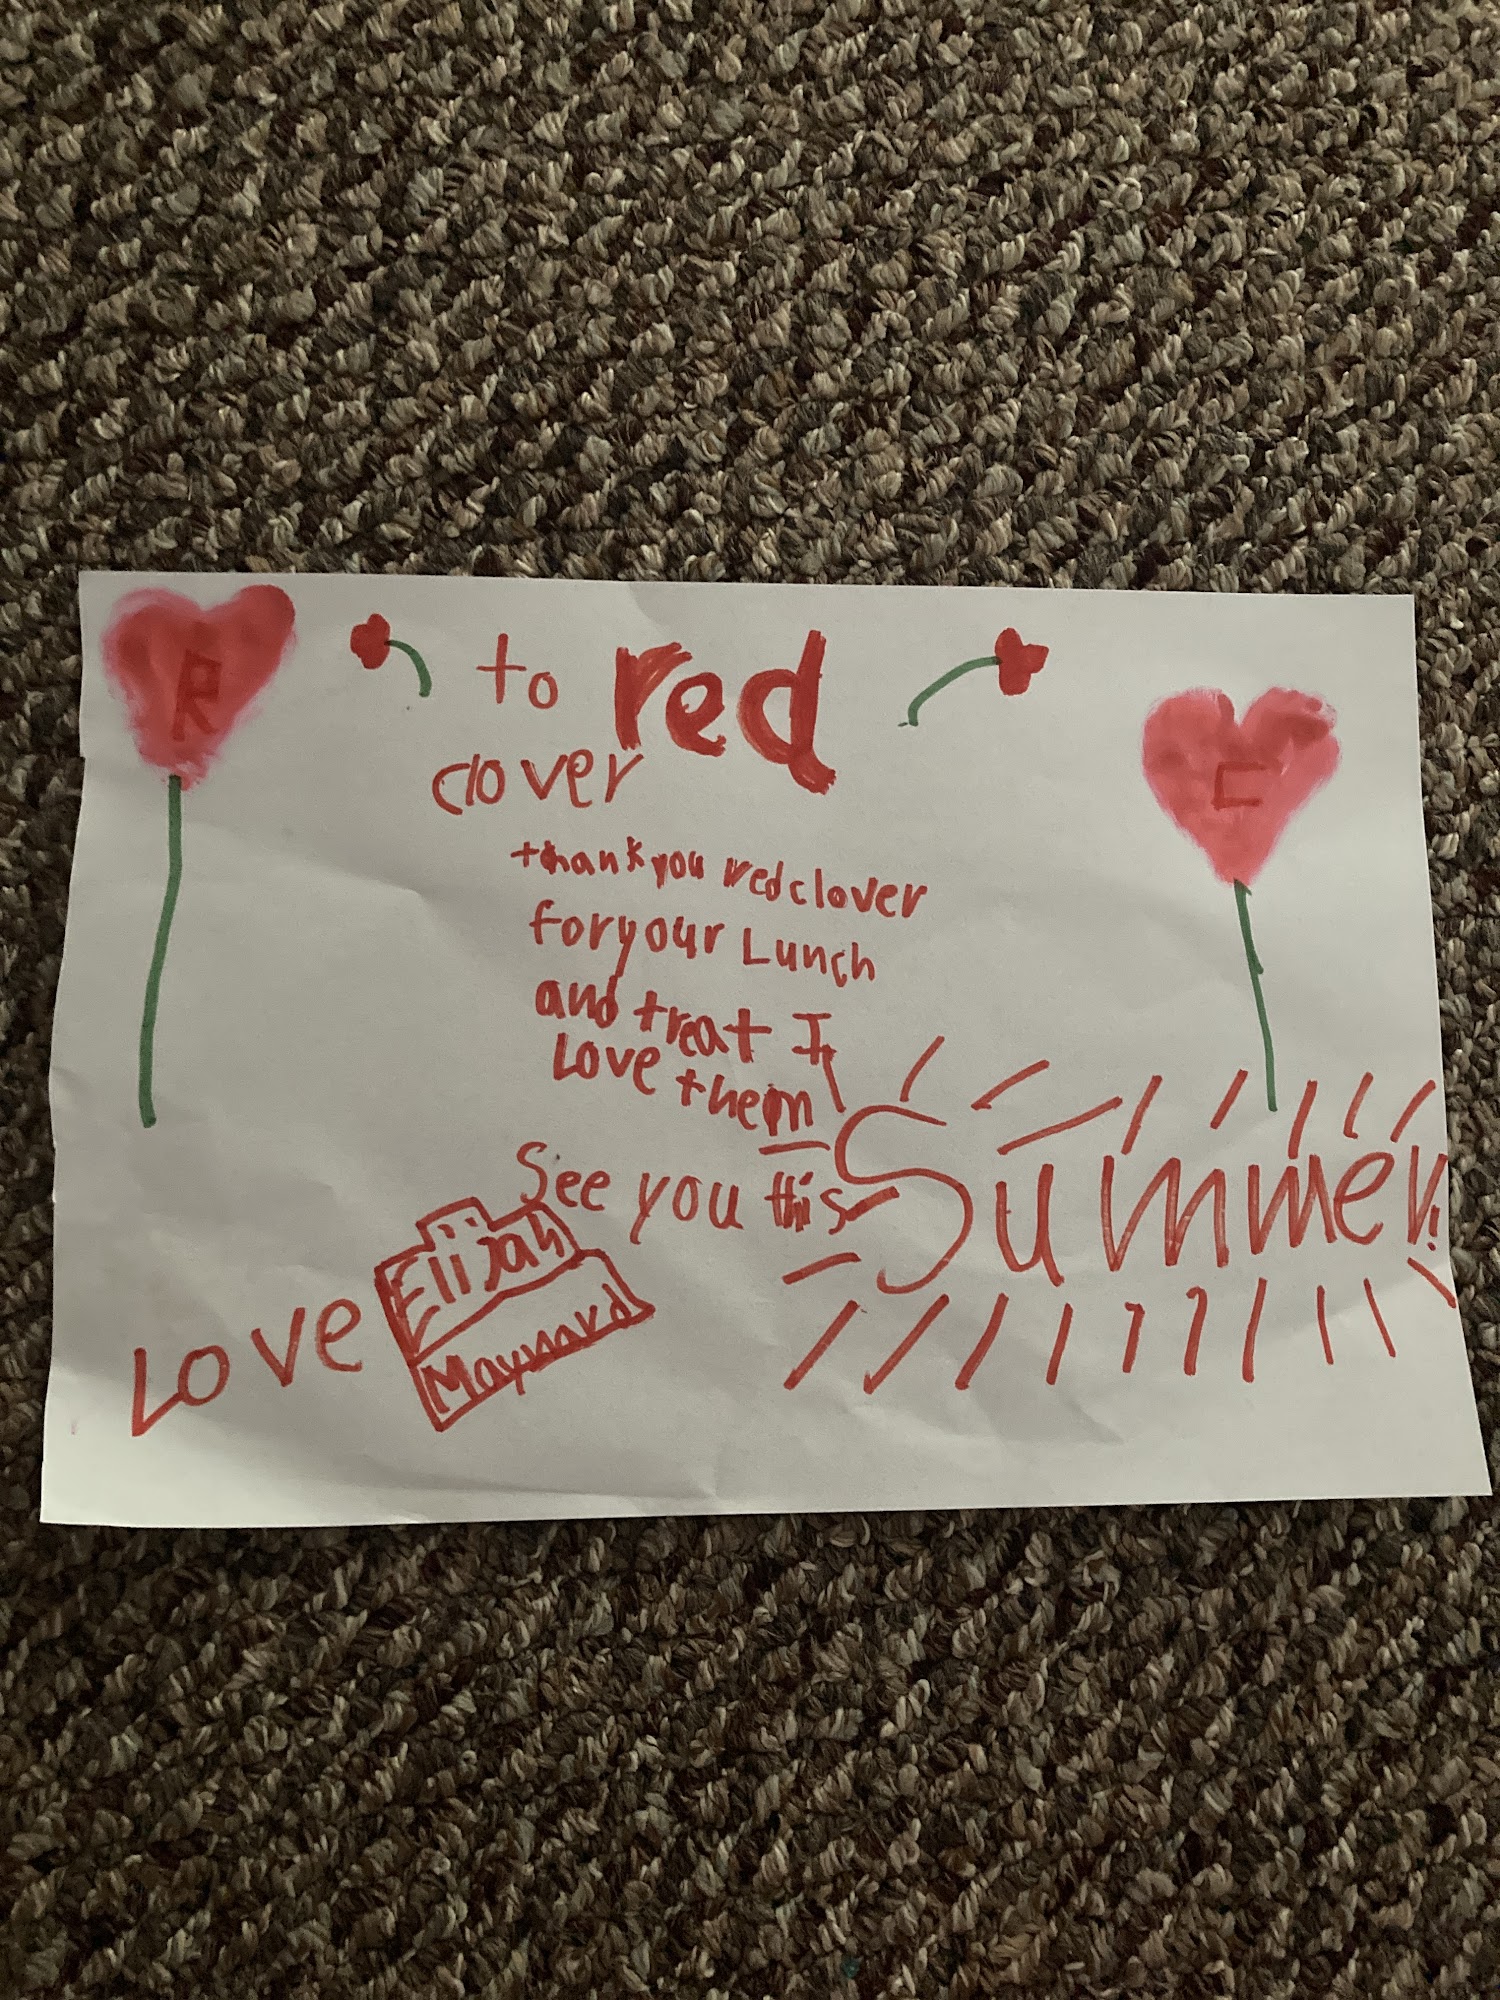 R
to red
clover
thank you red clover
for your Lunch
and treat I
Love them
See you this Summer!
Love Elijah
Maynard
C